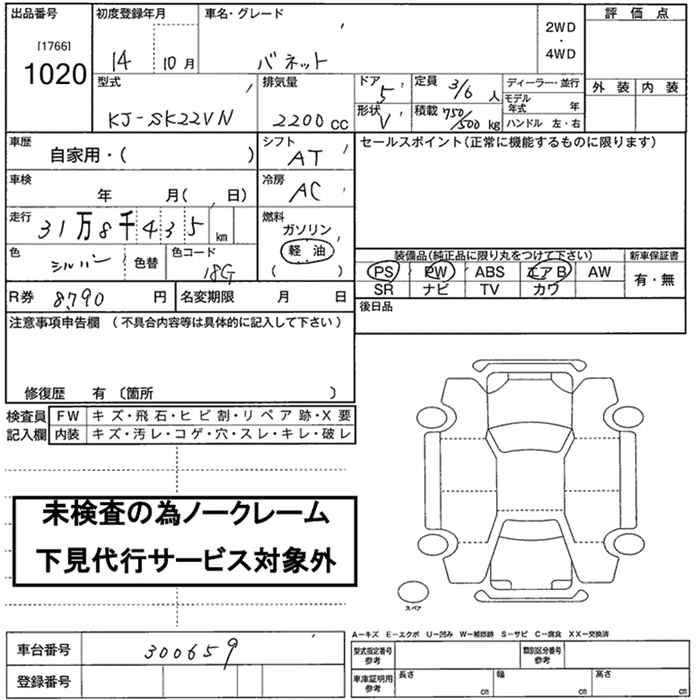 出品番号 初度登録年月 車名・グレード 評 価 点
[1766] 1020 14 10月 バネット 2WD ・ 4WD
型式 排気量 ドア 5 定員 3/6 人 ディーラー・並行 外 装 内 装
KJ-SK22VN 2200 cc 形状 V 積載 750/500 kg モデル年式 年
ハンドル 左・右
車歴 自家用・( ) シフト AT セールスポイント(正常に機能するものに限ります)
車検 年 月( 、 日) 冷房 AC
走行 31万8千435 km 燃料 ガソリン 軽 油 ( )
色 シルバー 色替 色コード 18G
装備品(純正品に限り丸をつけて下さい) 新車保証書
PS PW ABS エアB AW 有・無
SR ナビ TV カワ
R券 8,790 円 名変期限 月 日 後日品
注意事項申告欄 (不具合内容等は具体的に記入して下さい)
修復歴 有 〔箇所 〕
検査員 FW キズ・飛石・ヒビ割・リペア跡・X要
記入欄 内装 キズ・汚レ・コゲ・穴・スレ・キレ・破レ
未検査の為ノークレーム
下見代行サービス対象外
スペア
A−キズ E−エクボ U−凹み W−補修跡 S−サビ C−腐食 XX−交換済
車台番号 300659 型式指定番号 参考 類別区分番号 参考
登録番号 車庫証明用 参考 長さ cm 幅 cm 高さ cm